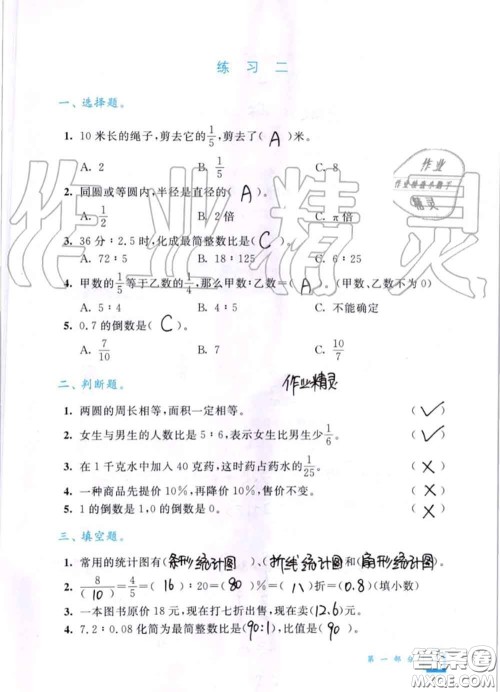 练习二
一、选择题。
1. 10米长的绳子,剪去它的1/5,剪去了( A )米。
A. 2 B. 1/5 C. 8
2. 同圆或等圆内,半径是直径的( A )。
A. 1/2 B. 2倍 C. π倍
3. 36分∶2.5时,化成最简整数比是( C )。
A. 72∶5 B. 18∶125 C. 6∶25
4. 甲数的1/5等于乙数的1/4,那么甲数∶乙数=( A )。(甲数、乙数不为0)
A. 5∶4 B. 4∶5 C. 不能确定
5. 0.7的倒数是( C )。
A. 7/10 B. 7 C. 10/7
二、判断题。 作业精灵
1. 两圆的周长相等,面积一定相等。 ( ✓ )
2. 女生与男生的人数比是5∶6,表示女生比男生少1/6。 ( ✓ )
3. 在1千克水中加入40克药,这时药占药水的1/25。 ( X )
4. 一种商品先提价10%,再降价10%,售价不变。 ( X )
5. 1的倒数是1,0的倒数是0。 ( X )
三、填空题。
1. 常用的统计图有(条形统计图)、(折线统计图)和(扇形统计图)。
2. 8/(10)=4/5=( 16 )∶20=( 80 )%=( 八 )折=(0.8)(填小数)
3. 一本图书原价18元,现在打七折出售,现在卖(12.6)元。
4. 7.2∶0.08化简为最简整数比是(90:1),比值是( 90 )。
第一部分
作业精灵
作业
精灵
答案圈
MXQE.COM